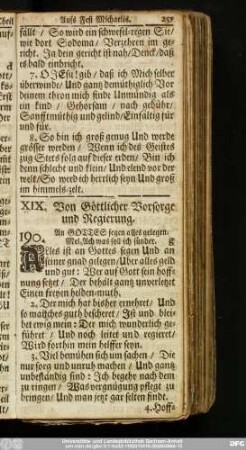 Auffs Fest Michaelis. 259
fällt / So wird ein schwefel-regen Sie/
wie dort Sodoma / Verzehren im ge-
richt. Ja dein gericht ist nah / Denck / daß
es bald einbricht.
7. O JEsu! gib / daß ich Mich selber
überwinde / Und gantz demüthiglich Vor
deinem thron mich finde Unmündig als
ein kind / Gehorsam / nach gebühr /
Sanfftmüthig und gelind / Einfältig für
und für.
8. So bin ich groß genug Und werde
grösser werden / Wenn ich des Geistes
zug Stets folg auf dieser erden / Bin ich
denn schlecht und klein / Und elend vor der
welt / So werd ich herrlich seyn Und groß
im himmels-zelt.
XIX. Von Göttlicher Vorsorge
und Regierung.
190. An GOTTES segen alles gelegen.
Mel. Ach was soll ich sünder.
Alles ist an Gottes segen Und an
seiner gnad gelegen / Uber alles geld
und gut: Wer auf Gott sein hoff-
nung setzt / Der behält gantz unverletzt
Einen freyen helden-muth.
2. Der mich hat bisher ernehret / Und
so manches gut bescheret / Ist und blei-
bet ewig mein: Der mich wunderlich ge-
führet / Und noch leitet und regieret /
Wird forthin mein helffer seyn.
3. Viel bemühen sich um sachen / Die
nur sorg und unruh machen / Und gantz
unbeständig sind: Ich begehr nach dem
zu ringen / Was vergnügung pflegt zu
bringen / Und man jetzt gar selten findt.
4. Hoff-
Universitäts- und Landesbibliothek Sachsen-Anhalt
DFG